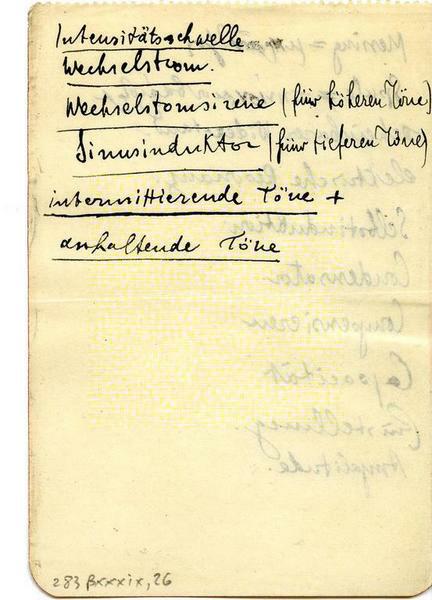 Intensitätsschwelle
Wechselstrom.
Wechselstomsirene (für höheren Töne)
Sinusinduktor (für tieferen Töne)
intermittierende Töne +
anhaltende Töne
283 βxxxix, 26